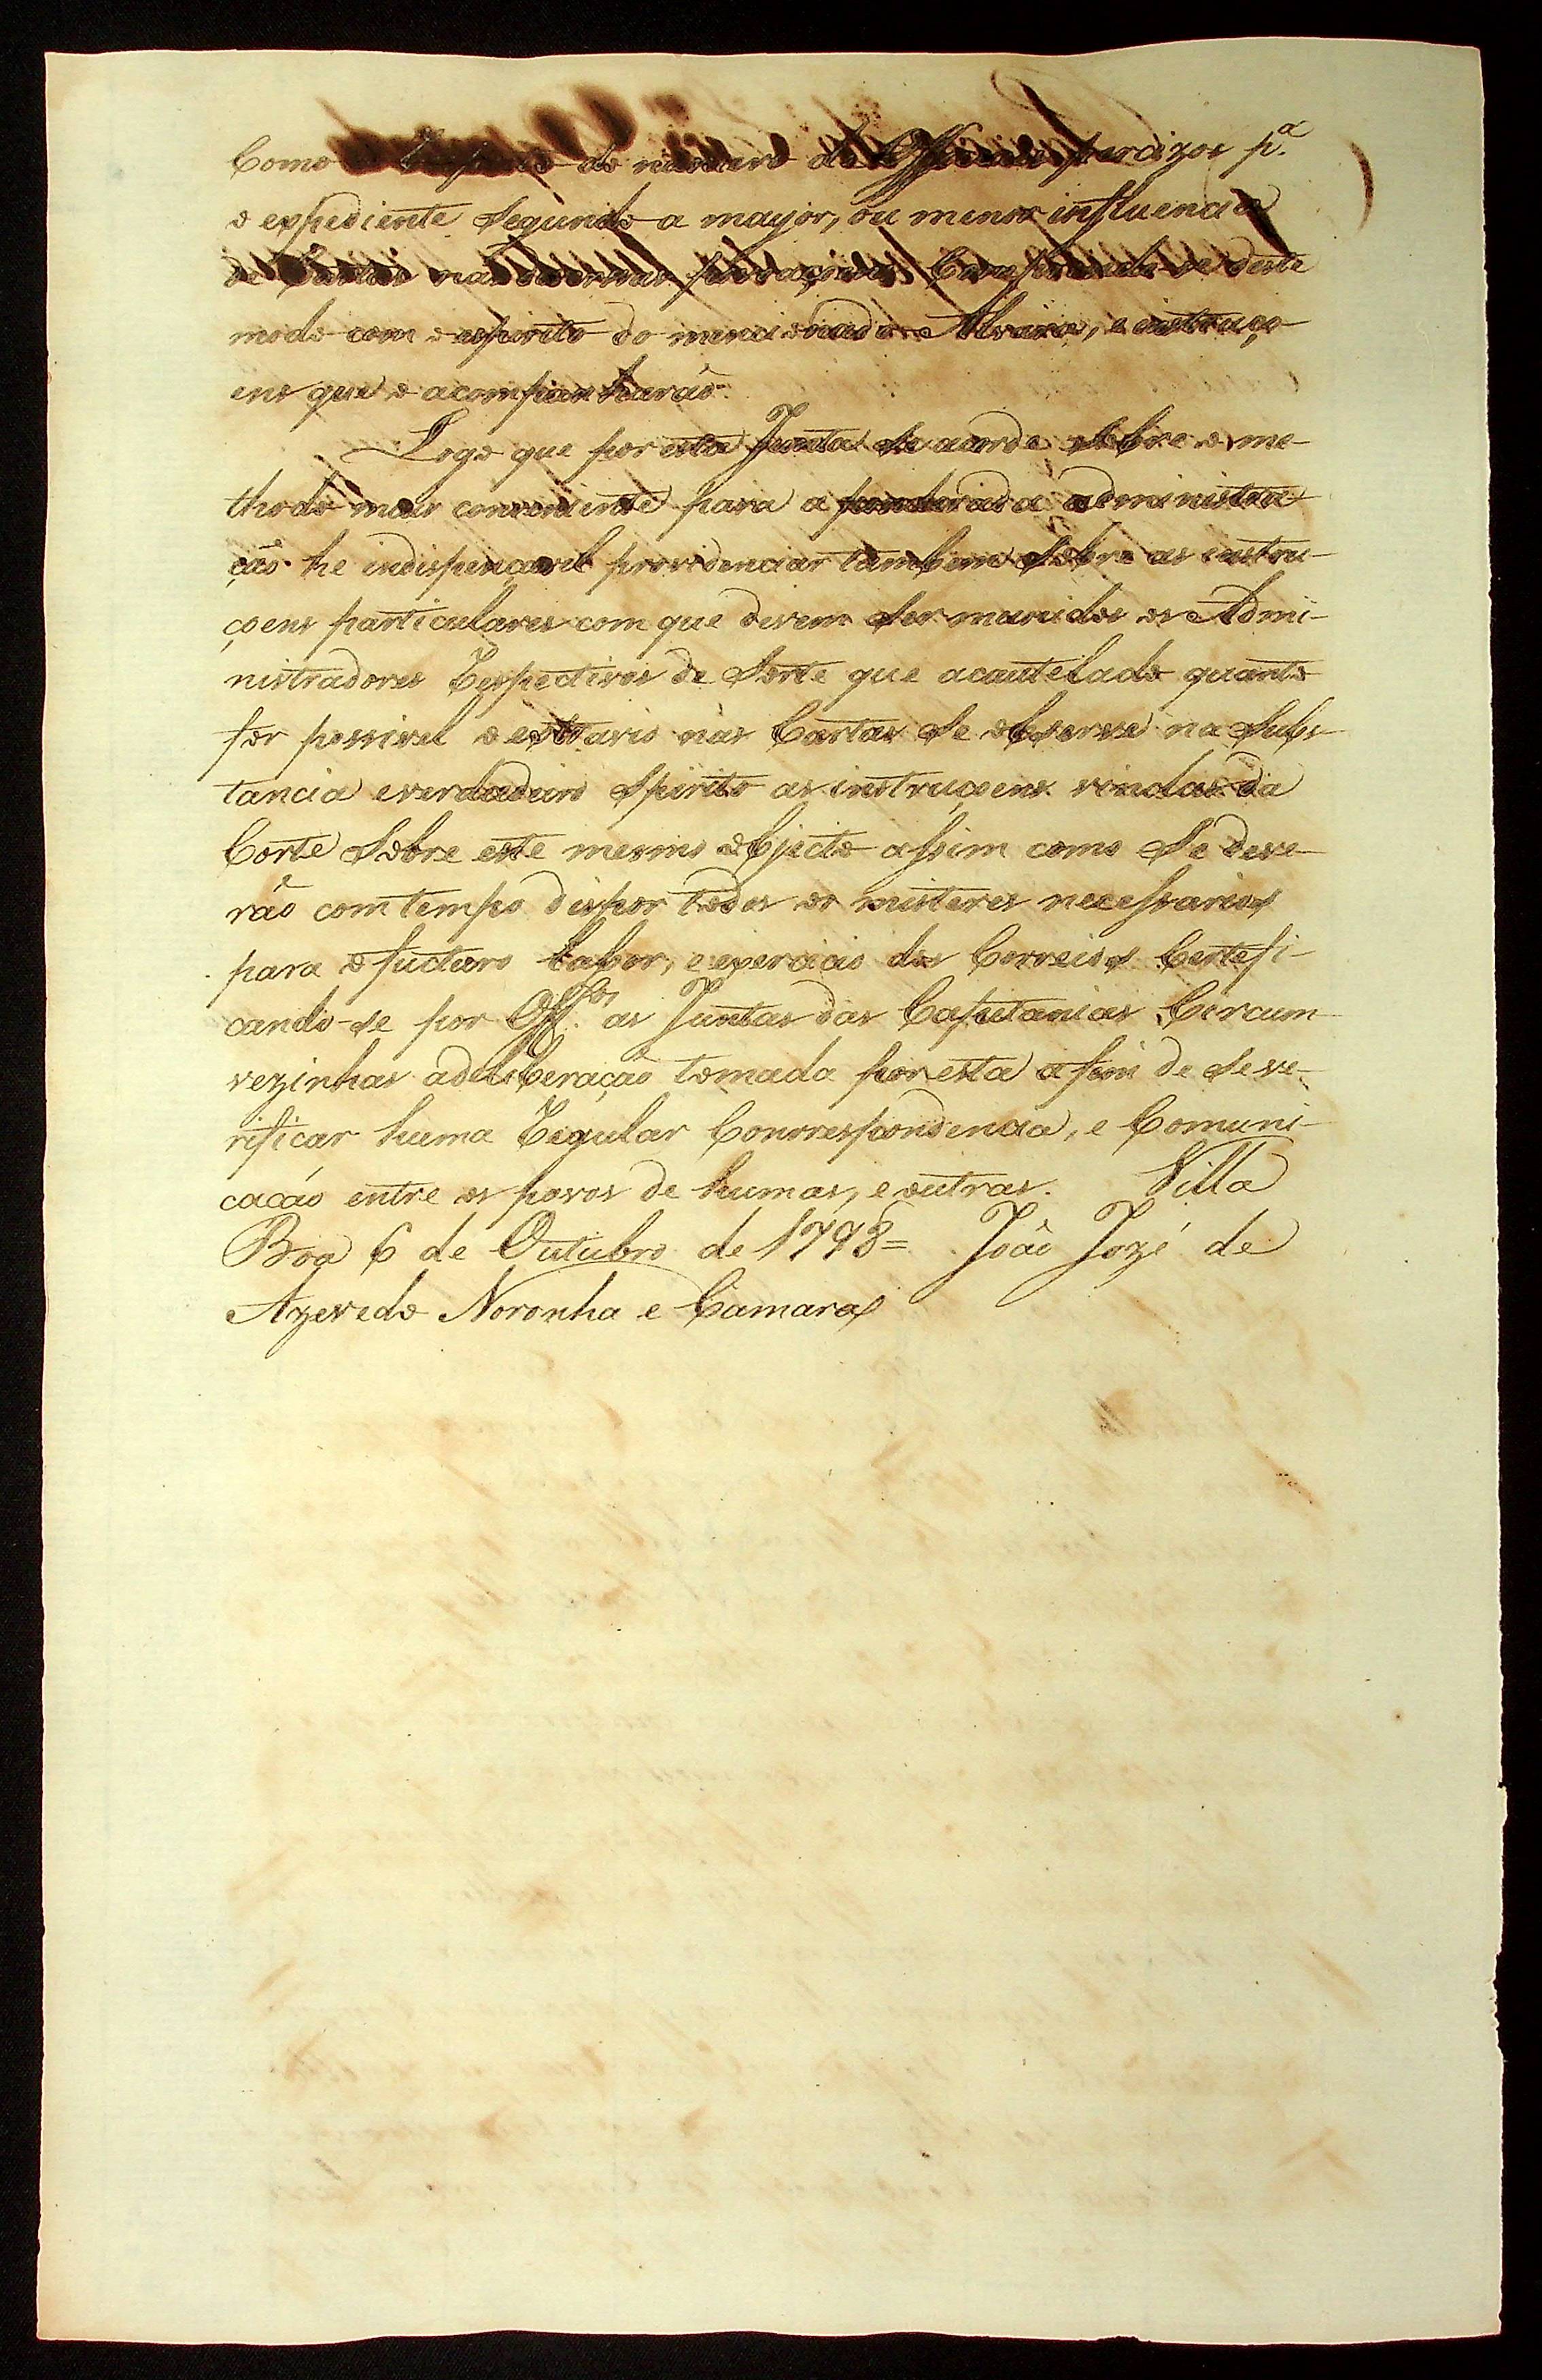 Como do numero de percizos p.ª
o expediente Segundo a mayor, ou menor influencia
de Cartas nas deste
modo com o espirito do mencionado Alvará, e instruço-
ens que o acompanharão.
Logo que por esta Junta Se acorde Sobre o me-
thodo mais conveniente para a ponderada administra-
ção he indispençavel providenciar tambem Sobre as instru-
çoens particulares com que devem Ser munidos os Admi-
nistradores Respectivos de Sorte que acautelado quanto
for possivel o estravio nas Cartas Se observe na Subs-
tancia everdadeiro Spirito as instruçoens vindas da
Corte Sobre este mesmo objecto assim como Se deve-
rão com tempo dispor todos os misteres necessarios
para o fucturo Labor, e exercicio dos Correios Certefi-
cando-se por Off.ºs as Juntas das Capitanias Circum
vezinhas adeliberação tomada por esta afim de Seve-
rificar huma Regular Conrrespondencia, e Comuni-
cacáo entre os povos de humas, e outras. Villa
Boa 6 de Outubro de 1798= João Jozé de
Azevedo Noronha e Camara